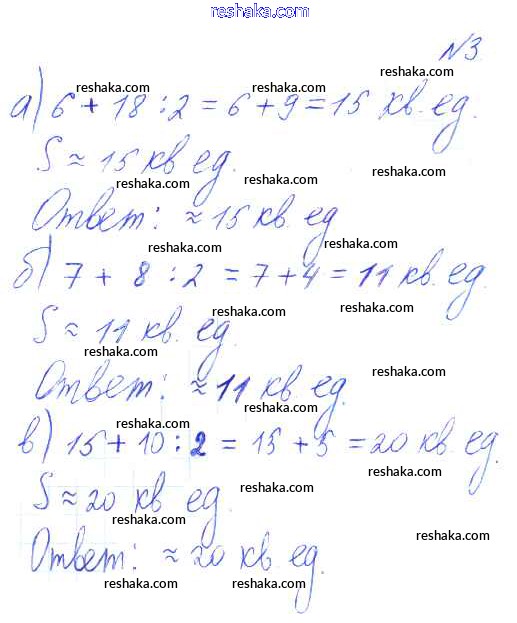 www.reshaka.com
N3
reshaka.com reshaka.com reshaka.com
а) 6 + 18 : 2 = 6 + 9 = 15 кв. ед.
reshaka.com reshaka.com
S ≈ 15 кв ед.
reshaka.com reshaka.com reshaka.com
Ответ: ≈ 15 кв. ед
reshaka.com reshaka.com
б) 7 + 8 : 2 = 7 + 4 = 11 кв. ед.
reshaka.com reshaka.com
S ≈ 11 кв. ед.
reshaka.com reshaka.com
Ответ: ≈ 11 кв. ед.
reshaka.com reshaka.com
reshaka.com reshaka.com
в) 15 + 10 : 2 = 15 + 5 = 20 кв. ед.
reshaka.com
S ≈ 20 кв. ед.
reshaka.com reshaka.com
Ответ: ≈ 20 кв. ед.
reshaka.com reshaka.com reshaka.com